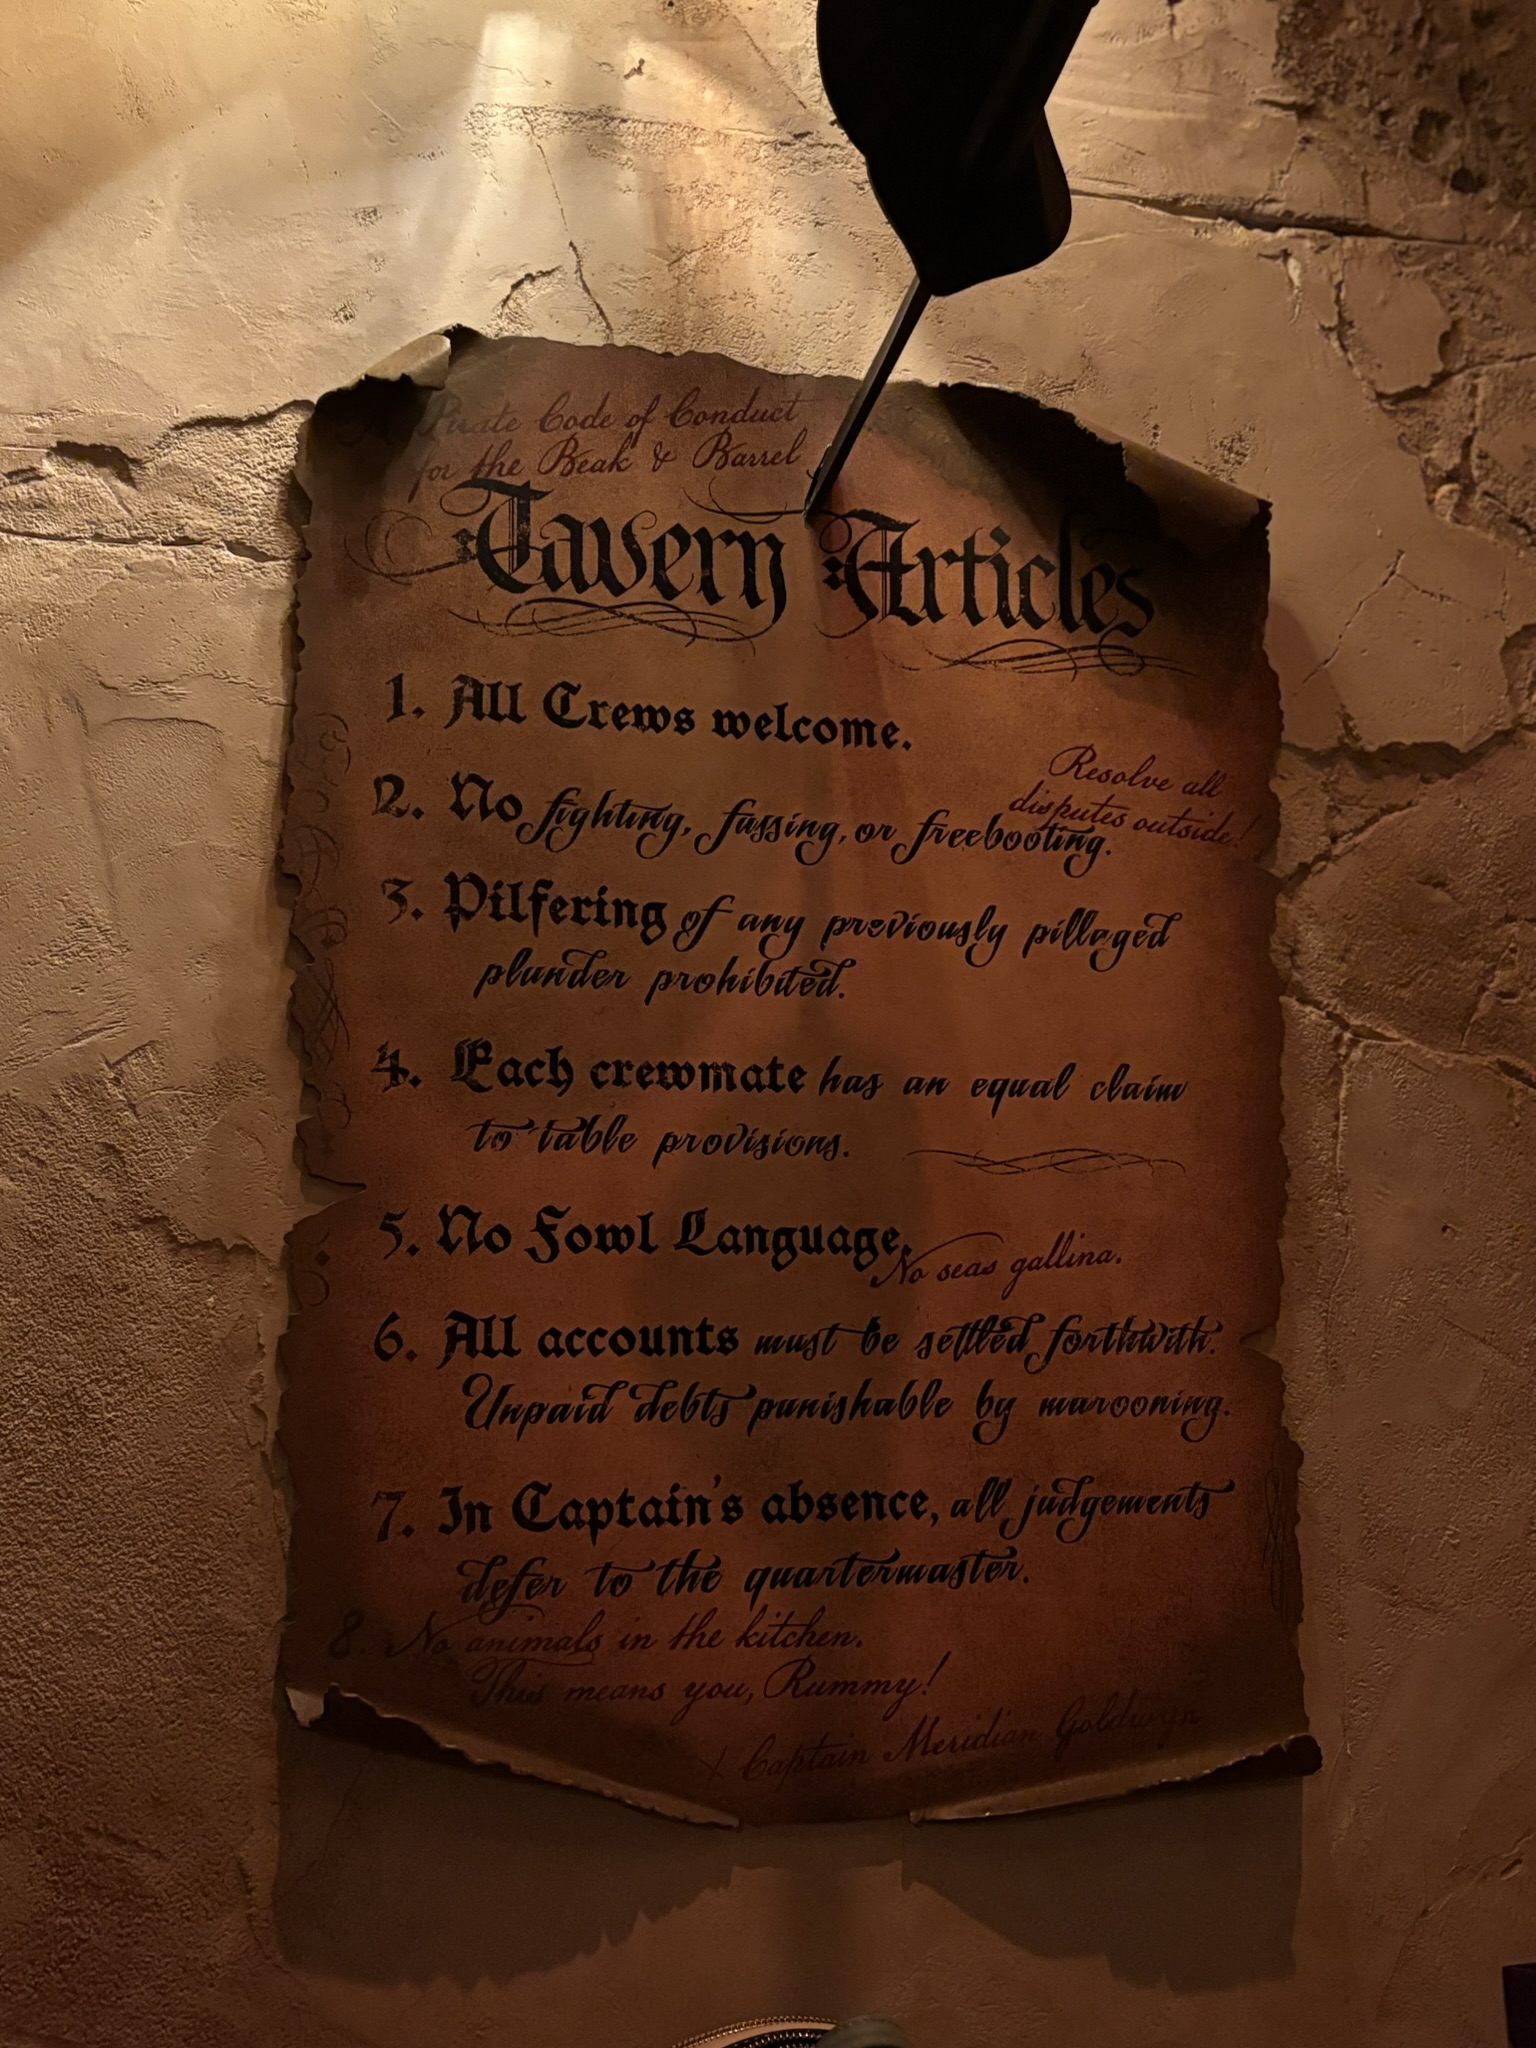 A Pirate Code of Conduct
for the Beak & Barrel
Tavern Articles
1. All Crews welcome.
Resolve all
disputes outside!
2. No fighting, fussing, or freebooting.
3. Pilfering of any previously pillaged
plunder prohibited.
4. Each crewmate has an equal claim
to table provisions.
5. No Fowl Language.
No seas gallina.
6. All accounts must be settled forthwith.
Unpaid debts punishable by marooning.
7. In Captain's absence, all judgements
defer to the quartermaster.
8. No animals in the kitchen.
This means you, Rummy!
X Captain Meridian Goldwyn